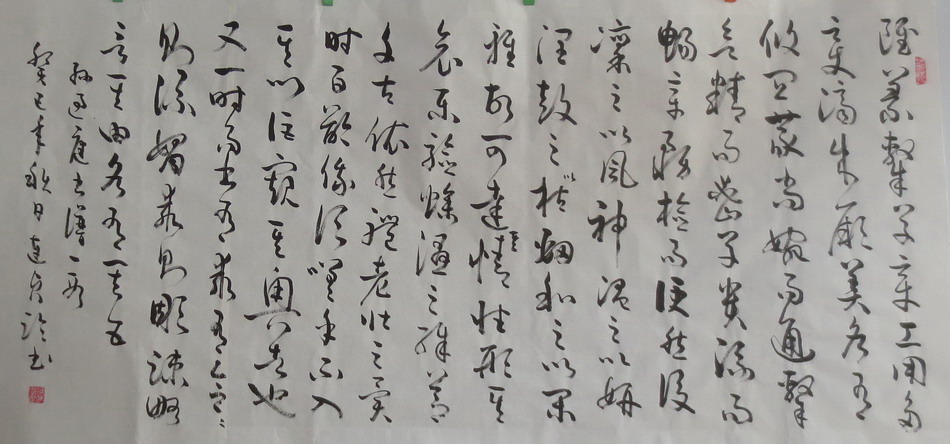 雖篆隸草章工用多
變濟成厥美各有
攸宜篆尚婉而通隸
欲精而密草貴流而
暢章務檢而便然後
凜之以風神溫之以妍
潤鼓之以枯勁和之以閑
雅故可達其情性形其
哀樂驗燥濕之殊節
千古依然體老壯之異
時百齡俄頃嗟乎不入
其門詎窺其奧者也
又一時而書有乖有合合
則流媚乖則雕疎略
言其由各有其五
孫過庭書譜一段
癸巳年秋日達玲書